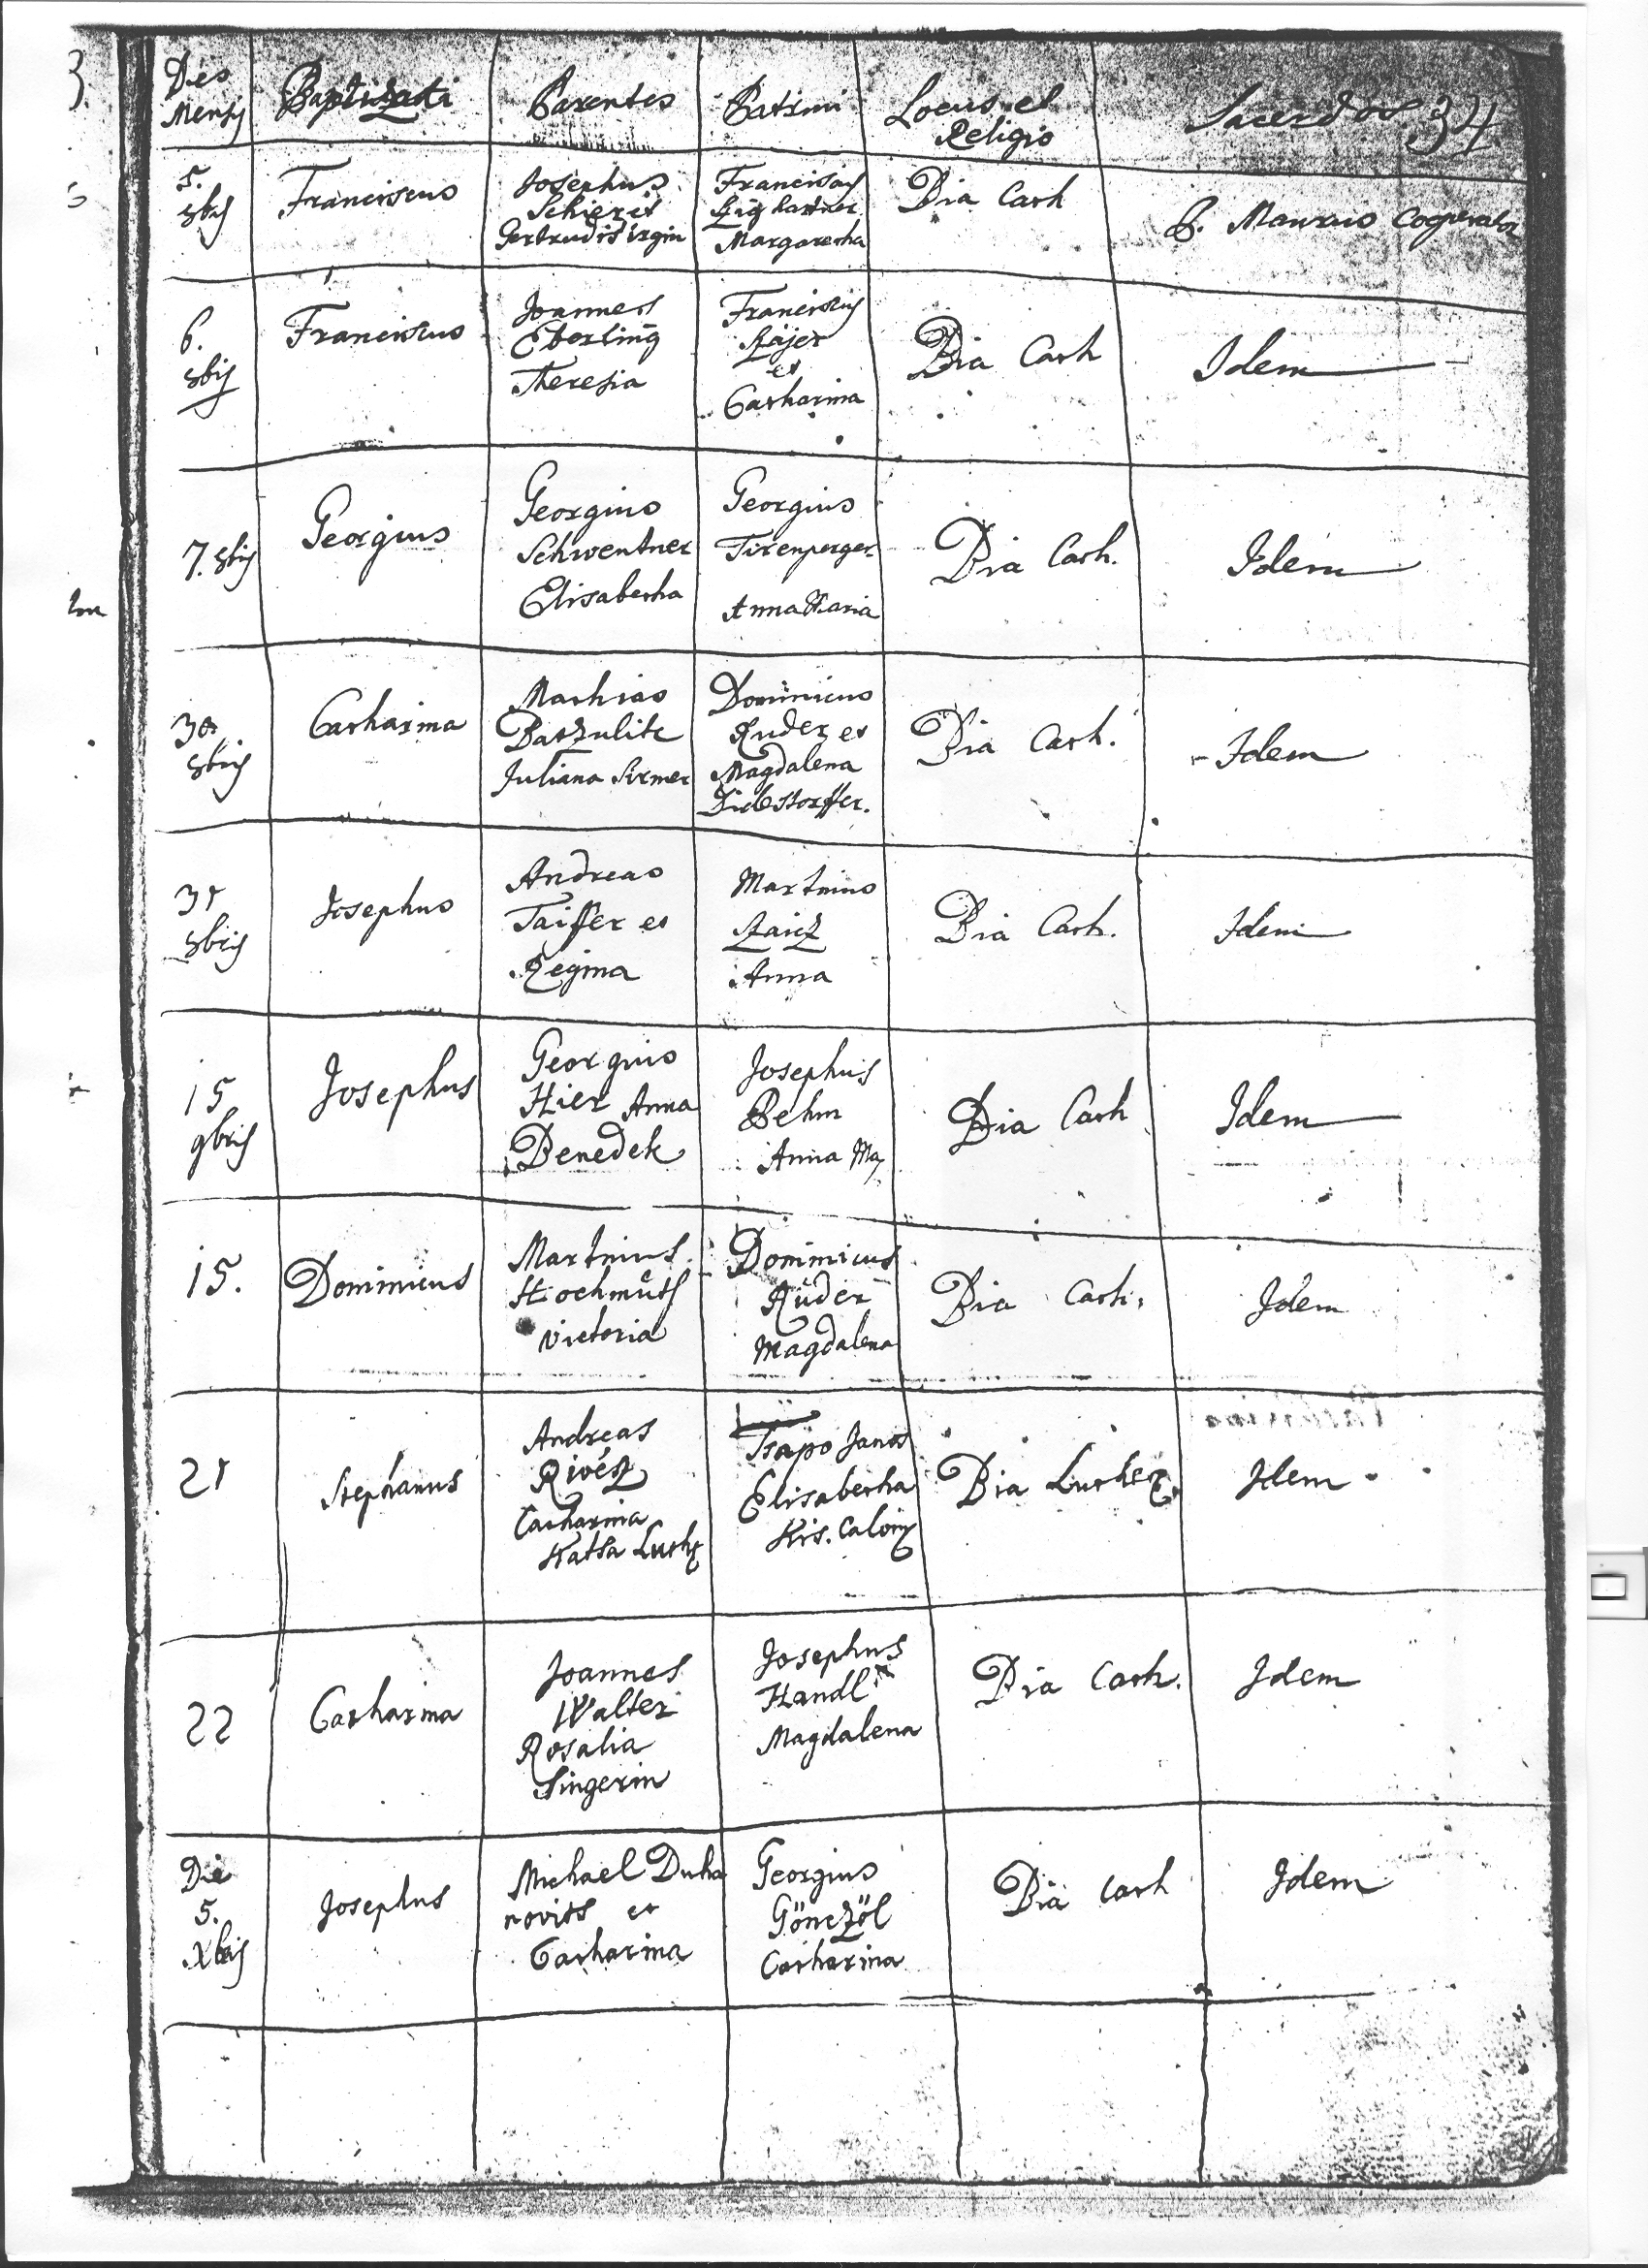 Dies Mensis
Baptizati
Parentes
Patrini
Locus et
Religio
Sacerdos 34
5.
8bris
Franciscus
Josephus
Schierit
Gertrudis
Franciscus
Margaretha
Bia Cath
P. Maurus Cooperator
6.
8bris
Franciscus
Joannes
Eberling
Theresia
Franciscus
Rajer
et
Catharina
Bia Cath
Idem
7. 8bris
Georgius
Georgius
Schwentner
Elisabetha
Georgius
Tirenperger
Anna Maria
Bia Cath.
Idem
30
8bris
Catharina
Mathias
Batzulik
Juliana Sirmer
Dominicus
Ruder et
Magdalena
Dirbstorffer.
Bia Cath.
Idem
31
8bris
Josephus
Andreas
Taiffer et
Regina
Martinus
Raicz
Anna
Bia Cath.
Idem
15
9bris
Josephus
Georgius
Hier Anna
Benedek
Josephus
Behm
Anna Ma
Bia Cath
Idem
15.
Dominicus
Martinus
Hochmuth
Victoria
Dominicus
Rüder
Magdalena
Bia Cath.
Idem
21
Stephanus
Andreas
Rivész
Catharina
Katsa Luth
Tsapo Janos
Elisabetha
Kis. Calvin
Bia Luther
Idem
22
Catharina
Joannes
Walter
Rosalia
Singerin
Josephus
Handl
Magdalena
Bia Cath.
Idem
Die
5.
Xbris
Josephus
Michael Duha
novits et
Catharina
Georgius
Gönczöl
Catharina
Bia Cath
Idem